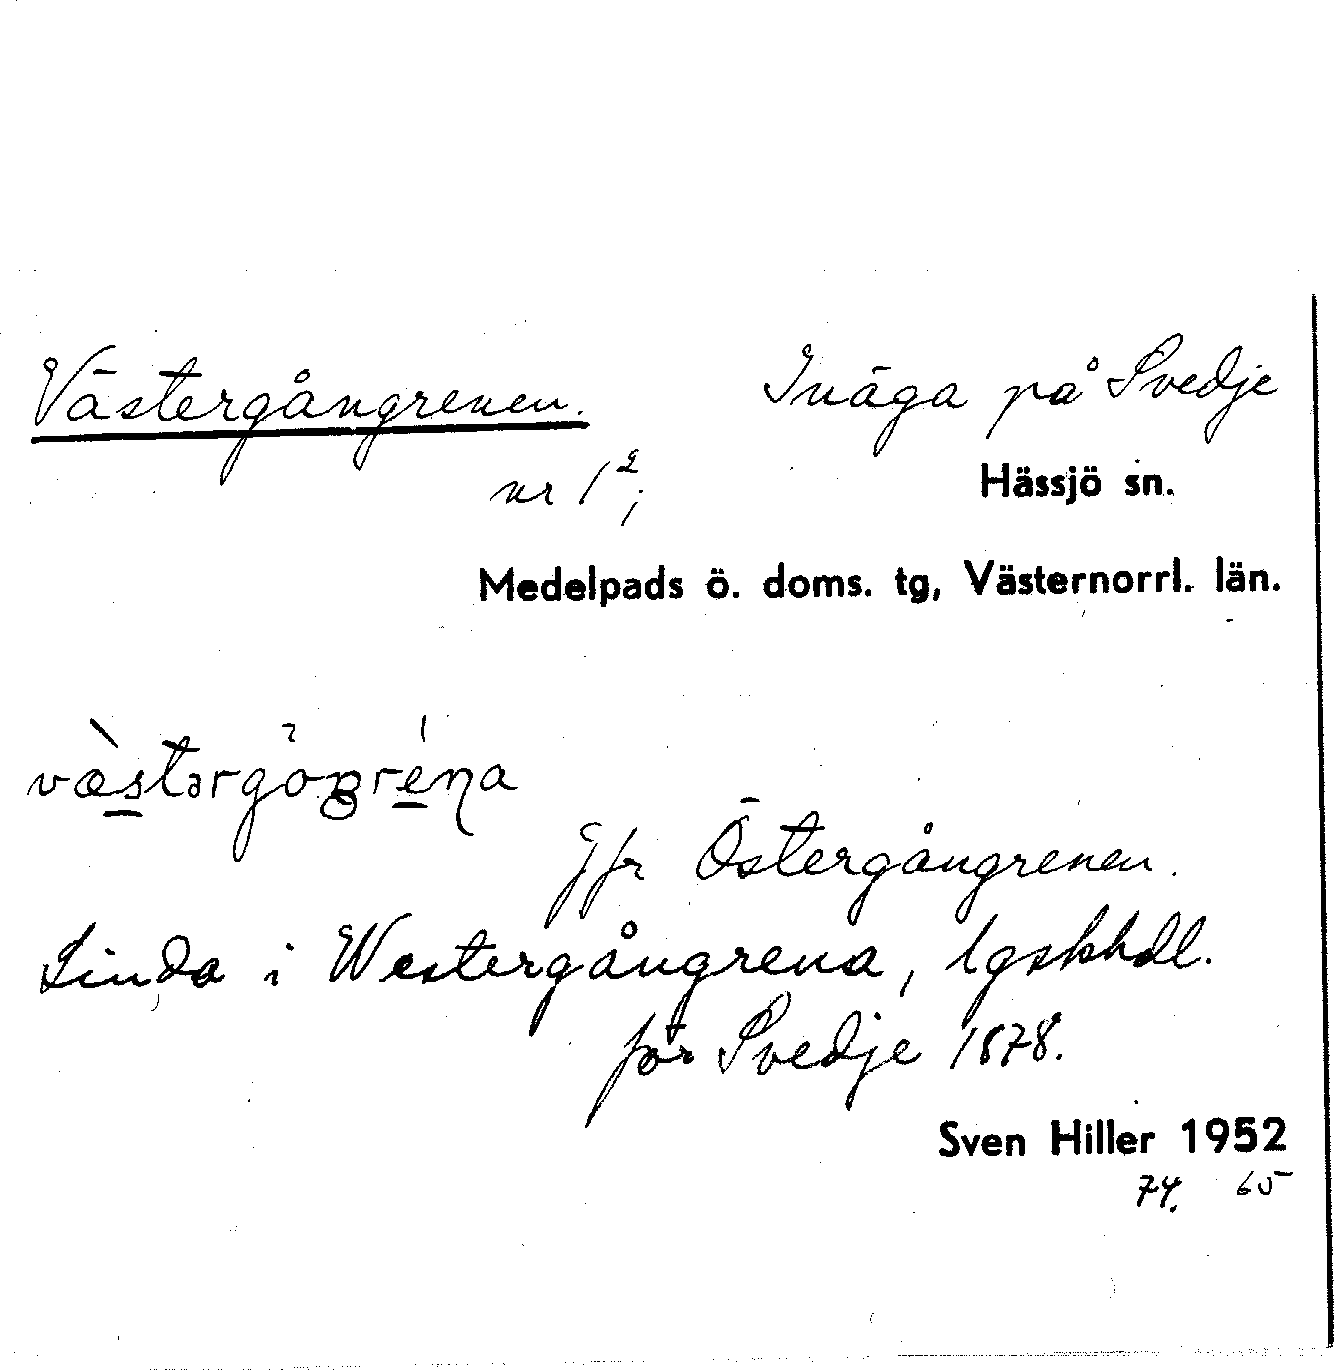 Västergångrenen. Inäga på Svedje
nr 1²; Hässjö sn.
Medelpads ö. doms. tg, Västernorrl. län.
Jfr Östergångrenen.
Linda i Westergångrena, lgskhdl.
för Svedje 1878.
Sven Hiller 1952
74. 65